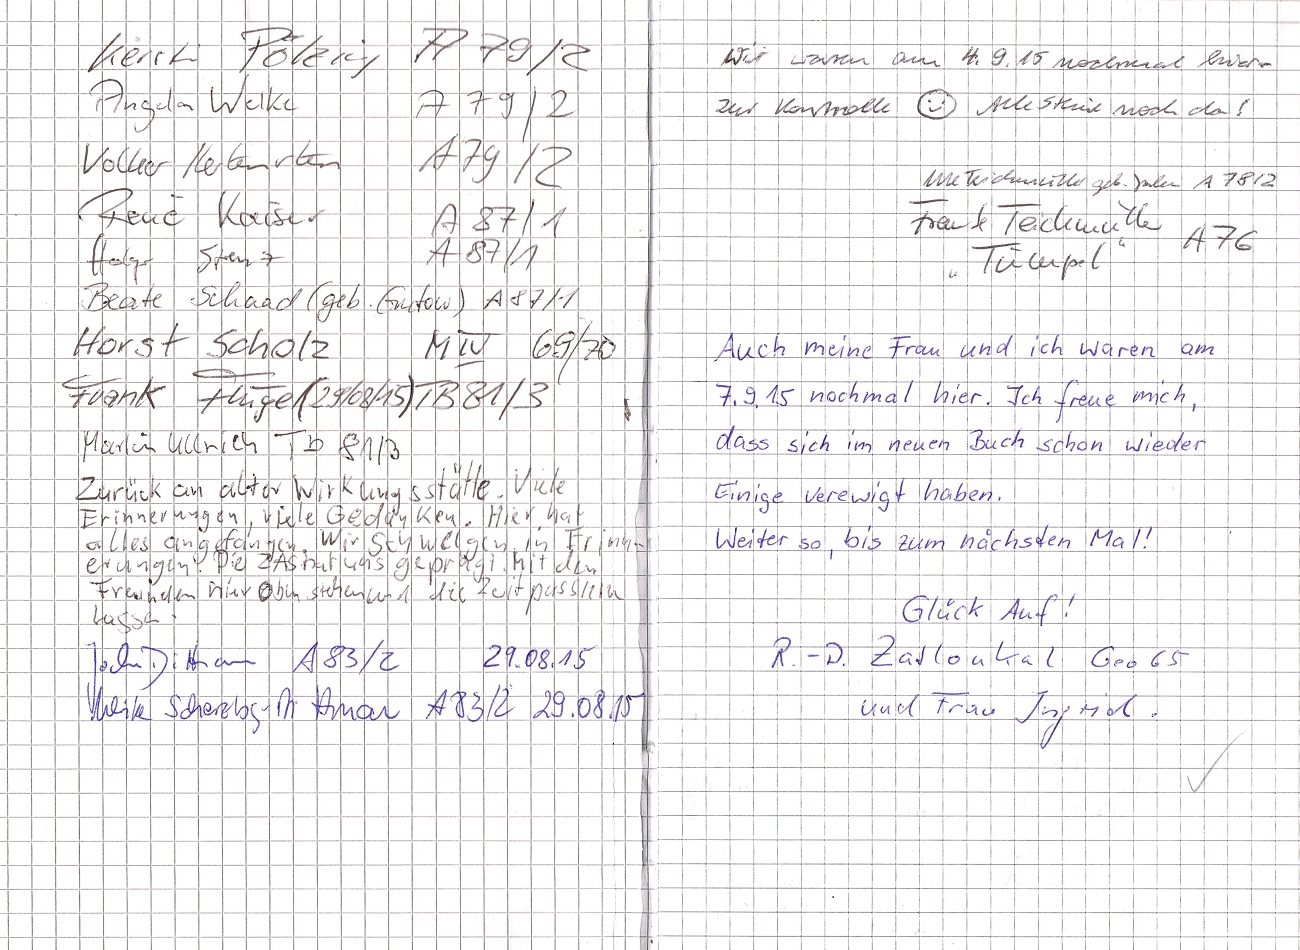 Kerstin Pölzig A 79/2
Angela Welke A 79/2
Volker A 79/2
René Kaiser A 87/1
Holger A 87/1
Beate Schaad (geb. Gustow) A 87/1
Horst Scholz M IV 69/70
Frank Flügel (29/08/15) TB 81/3
Martin Ullrich TB 81/3
Zurück an alter Wirkungsstätte. Viele
Erinnerungen, viele Gedanken. Hier hat
alles angefangen. Wir schwelgen in Erinn-
erungen. Die hat uns geprägt. Mit den
Freunden hier oben stehen und die Zeit
lassen.
A 83/2 29.08.15
A 83/2 29.08.15
Wir waren am 4.9.15 nochmal hier
zur Kontrolle ☺ Alle Steine noch da!
geb. A 78/2
Frank Teichmüller A 76
"Tümpel"
Auch meine Frau und ich waren am
7.9.15 nochmal hier. Ich freue mich,
dass sich im neuen Buch schon wieder
Einige verewigt haben.
Weiter so, bis zum nächsten Mal!
Glück Auf!
R.-D. Zadloukal Geo 65
und Frau Ingrid.